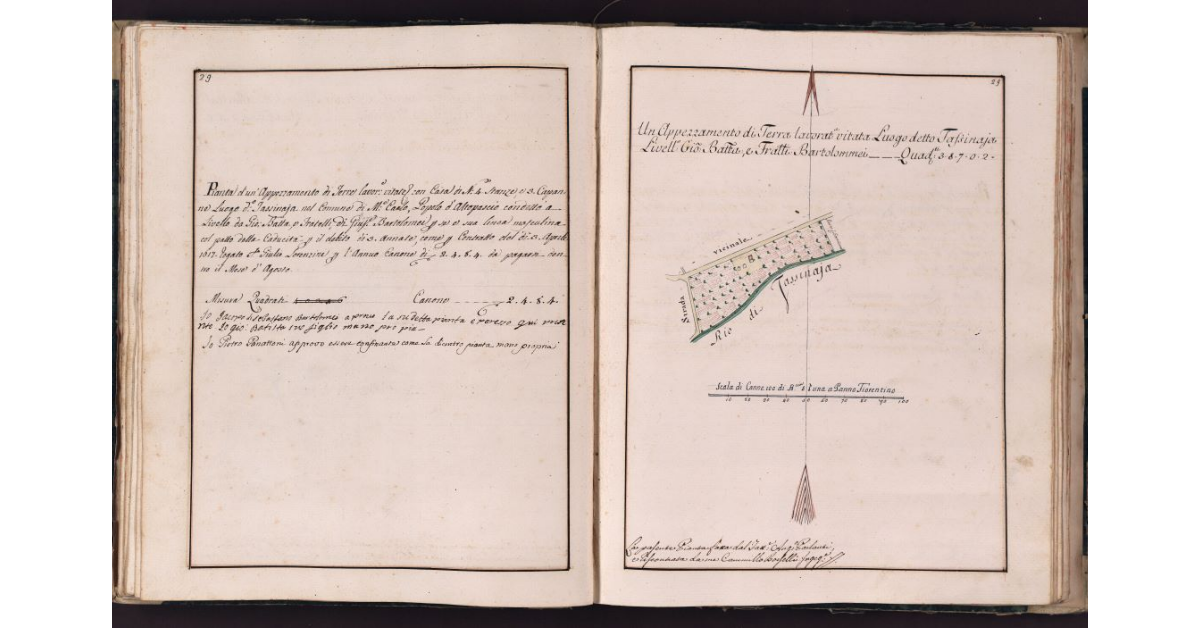 29
Pianta d'un' Appezzamento di Terre lavor.e vitate con Casa di N. 4 Stanze e 3. Capan-
ne Luogo d.o Tassinaja nel Comune di M.e Carlo, Popolo d'Altopascio condotto a
Livello da Gio. Batta, e Fratelli, di Bartolomei e sua linea masculina
col patto della Caducità il debito di 3. Annate, come Contratto del dì 3. Aprile
Rogato Giulio Lorenzini l'Annuo Canone di 2. 4. 8. 4. da pagarsi
il Mese d' Agosto.
Misura Quadrati Canone ---- 2. 4. 8. 4.
Io Jacopo Bartolomei aprovo la sudetta pianta qui
Io Gio: Batista suo figlio mano pro pia
Io Pietro Panattoni approvo essere confinante come la dicontro pianta mano propria
25
Un Appezzamento di Terra lavorat.a vitata Luogo detto Tassinaja
Livell.i Gio: Batta, e Fratelli Bartolommei --- Quad.i 3. 8. 7. 0. 2.
vicinale
Strada
B
Rio di Tassinaja
Scala di Canne 100 di Luna a Panno Fiorentino
10 20 30 40 50 60 70 80 90 100
La presente Pianta fatta dal
e riscontrata da me Cammillo Borselli Ingeg.e